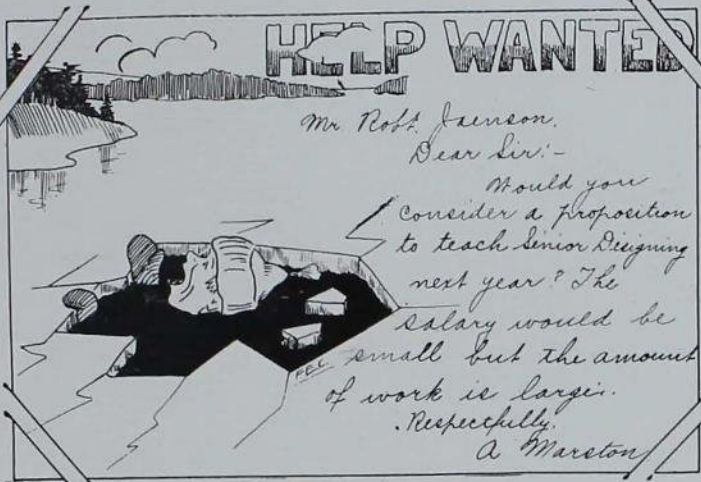 HELP WANTED
Mr Robt. Jaenson.
Dear Sir:-
Would you
consider a proposition
to teach Senior Designing
next year? The
salary would be
small but the amount
of work is large.
Respectfully.
A Marston